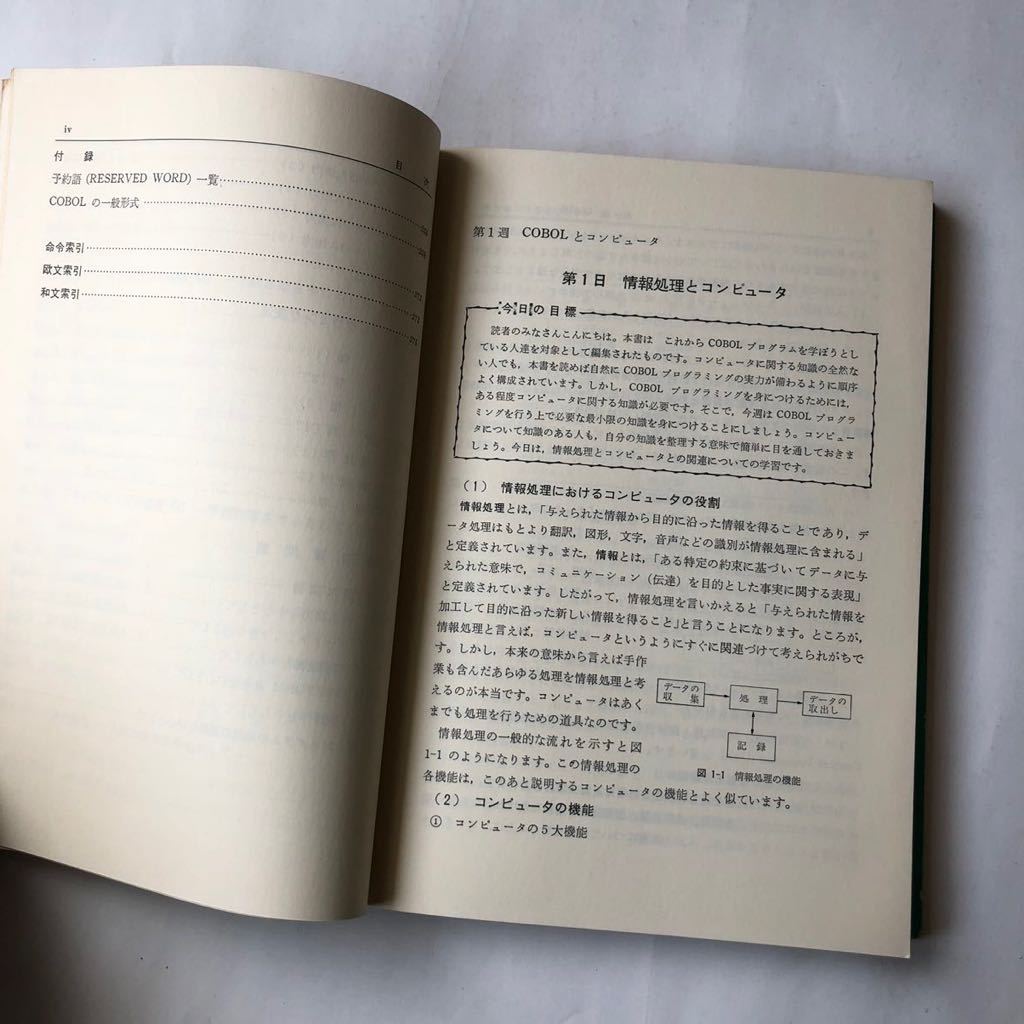 iv
目 次
付 録
予約語 (RESERVED WORD) 一覧
COBOL の一般形式
命令索引
欧文索引
和文索引
第1週 COBOL とコンピュータ
第1日 情報処理とコンピュータ
今日の目標
読者のみなさんこんにちは。本書は これから COBOL プログラムを学ぼうとし
ている人達を対象として編集されたものです。コンピュータに関する知識の全然な
い人でも，本書を読めば自然に COBOL プログラミングの実力が備わるように順序
よく構成されています。しかし，COBOL プログラミングを身につけるためには，
ある程度コンピュータに関する知識が必要です。そこで，今週は COBOL プログラ
ミングを行う上で必要な最小限の知識を身につけることにしましょう。コンピュー
タについて知識のある人も，自分の知識を整理する意味で簡単に目を通しておきま
しょう。今日は，情報処理とコンピュータとの関連についての学習です。
(1) 情報処理におけるコンピュータの役割
情報処理とは，「与えられた情報から目的に沿った情報を得ることであり，デ
ータ処理はもとより翻訳，図形，文字，音声などの識別が情報処理に含まれる」
と定義されています。また，情報とは，「ある特定の約束に基づいてデータに与
えられた意味で，コミュニケーション（伝達）を目的とした事実に関する表現」
と定義されています。したがって，情報処理を言いかえると「与えられた情報を
加工して目的に沿った新しい情報を得ること」と言うことになります。ところが，
情報処理と言えば，コンピュータというようにすぐに関連づけて考えられがちで
す。しかし，本来の意味から言えば手作
業も含んだあらゆる処理を情報処理と考
えるのが本当です。コンピュータはあく
までも処理を行うための道具なのです。
情報処理の一般的な流れを示すと図
1-1 のようになります。この情報処理の
各機能は，このあと説明するコンピュータの機能とよく似ています。
データの
収 集
処 理
データの
取出し
記 録
図 1-1 情報処理の機能
(2) コンピュータの機能
① コンピュータの5大機能